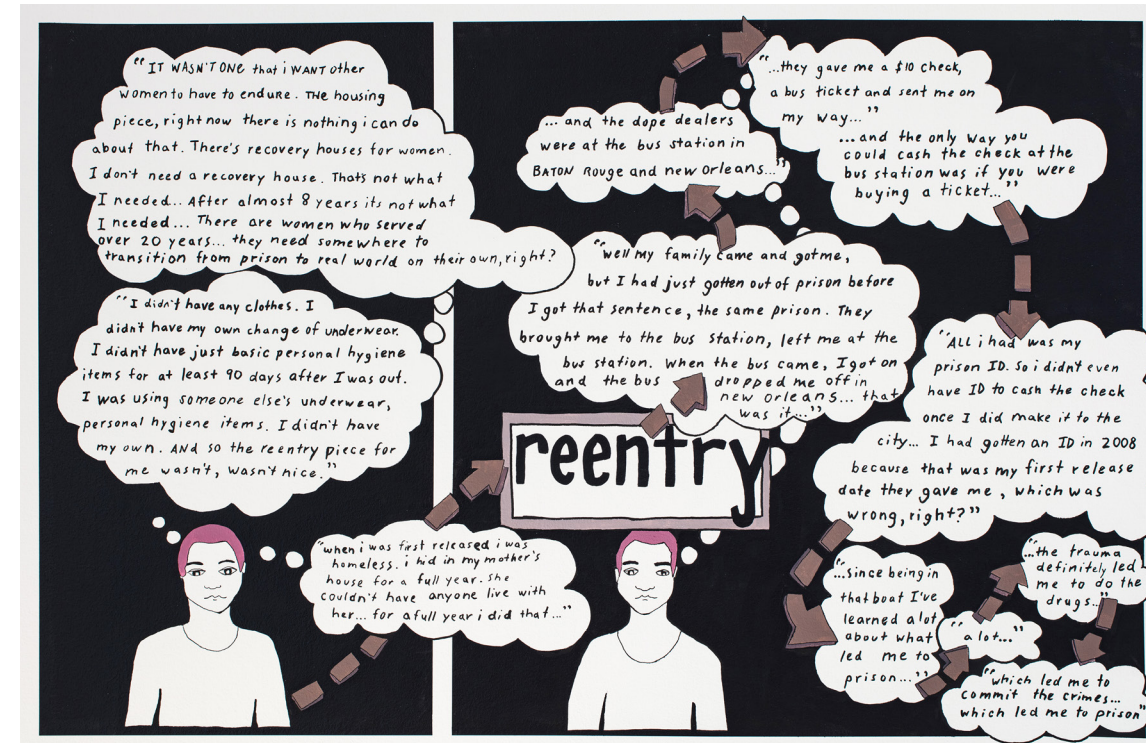 "IT WASN'T ONE that i WANT other
women to have to endure. THe housing
piece, right now there is nothing i can do
about that. There's recovery houses for women.
I don't need a recovery house. Thats not what
I needed... After almost 8 years its not what
I needed... There are women who served
over 20 years... they need somewhere to
transition from prison to real world on their own, right?
"I didn't have any clothes. I
didn't have my own change of underwear.
I didn't have just basic personal hygiene
items for at least 90 days after I was out.
I was using someone else's underwear,
personal hygiene items. I didn't have
my own. AND so the reentry piece for
me wasn't, wasn't nice."
"when i was first released i was
homeless. i hid in my mother's
house for a full year. she
couldn't have anyone live with
her... for a full year i did that..."
reentry
"well my family came and got me,
but I had just gotten out of prison before
I got that sentence, the same prison. They
brought me to the bus station, left me at the
bus station. when the bus came, I got on
and the bus dropped me off in
new orleans... that
was it..."
... and the dope dealers
were at the bus station in
BATON Rouge and new Orleans..."
"...they gave me a $10 check,
a bus ticket and sent me on
my way..."
...and the only way you
could cash the check at the
bus station was if you were
buying a ticket..."
"ALL i had was my
prison ID. So i didn't even
have ID to cash the check
once I did make it to the
city... I had gotten an ID in 2008
because that was my first release
date they gave me, which was
wrong, right?"
"...Since being in
that boat I've
learned a lot
about what
led me to
prison..."
"a lot..."
"...the trauma
definitely led
me to do the
drugs..."
"which led me to
commit the crimes...
which led me to prison"